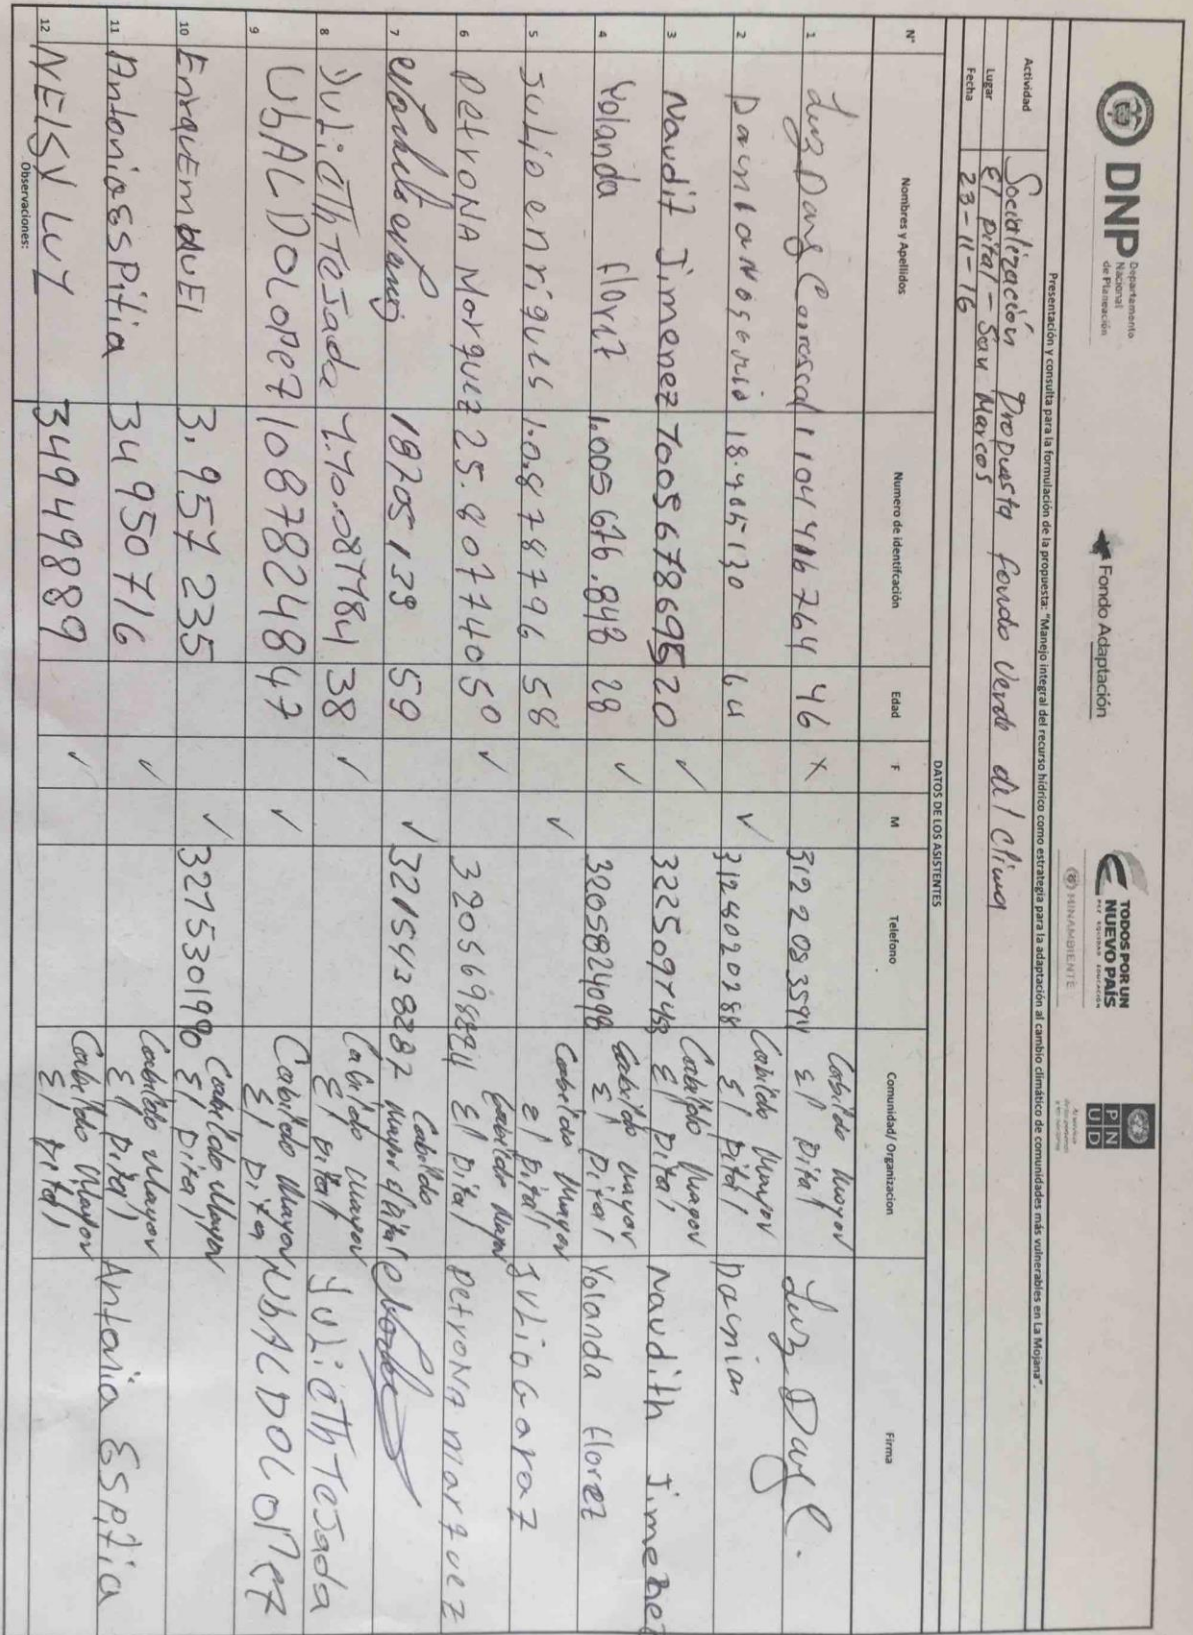 DNP Departamento Nacional de Planeación
Fondo Adaptación
TODOS POR UN NUEVO PAÍS
PAZ EQUIDAD EDUCACIÓN
MINAMBIENTE
PNUD
Presentación y consulta para la formulación de la propuesta: "Manejo integral del recurso hídrico como estrategia para la adaptación al cambio climático de comunidades más vulnerables en La Mojana".
Actividad Socialización Propuesta fondo Verde del Clima
Lugar El pital - San Marcos
Fecha 23-11-16
DATOS DE LOS ASISTENTES
N° Nombres y Apellidos Numero de identifcación Edad F M Telefono Comunidad/ Organizacion Firma
1 Luz Dary Carrascal 46 X Cabildo Mayor El Pital Luz Dary C.
2 64 ✓ 3124020288 Cabildo Mayor El pital
3 Naudit Jimenez 20 ✓ Cabildo Mayor El Pital Naudith Jimenez
4 Yolanda florez 1.005676.848 28 ✓ 3205824098 Cabildo mayor El pital Yolanda florez
5 Julio enriques 1.0.87 8796 58 ✓ Cabildo Mayor El pital
6 Petrona Marquez 25.807740 50 ✓ Cabildo Mayor El pital Petrona marquez
7 18705139 59 ✓ 3215438287 Cabildo Mayor el pital
8 TeJada 38 ✓ Cabildo Mayor El pital TeJada
9 UbALDO Lopez 1087878248 47 ✓ Cabildo Mayor El pital UbALDO Lopez
10 3.957235 ✓ 3275301990 Cabildo Mayor El pital
11 Antonia esPitia 34950716 ✓ Cabildo Mayor El pital Antonia EsPitia
12 NEISY LUZ 34949889 ✓ Cabildo Mayor El pital
Observaciones: